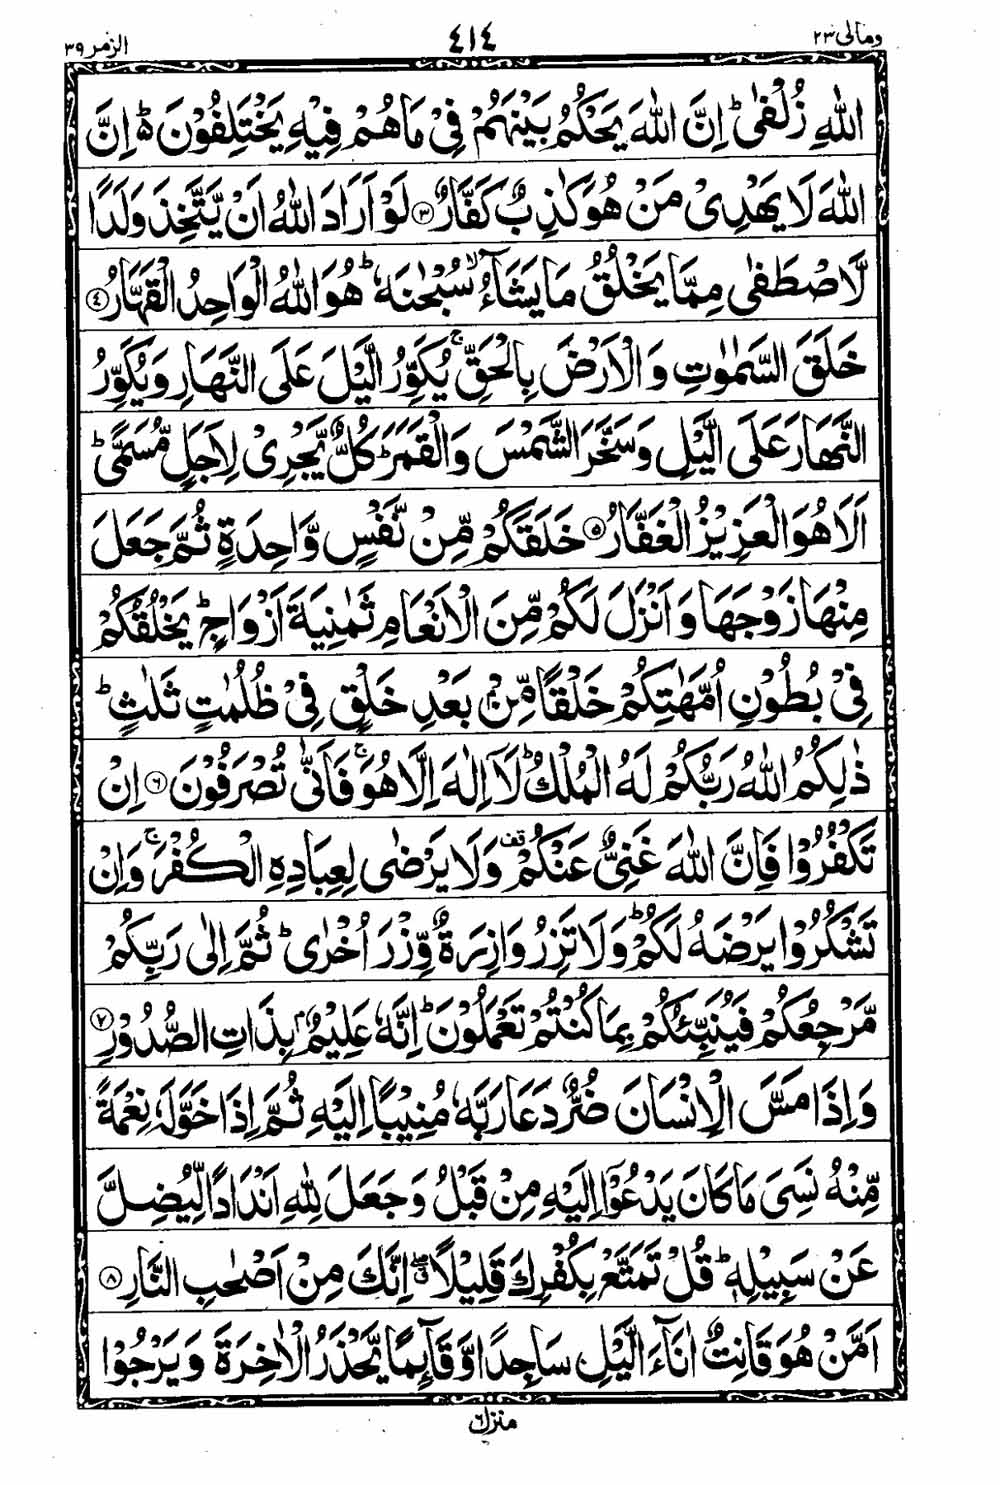 ومالی ٢٣ ٤١٤ الزمر ٣٩
اللّٰهِ زُلْفٰىؕ اِنَّ اللّٰهَ يَحْكُمُ بَيْنَهُمْ فِىْ مَا هُمْ فِيْهِ يَخْتَلِفُوْنَ ؕ۬ اِنَّ
اللّٰهَ لَا يَهْدِىْ مَنْ هُوَ كٰذِبٌ كَفَّارٌ ۝٣ لَوْ اَرَادَ اللّٰهُ اَنْ يَّتَّخِذَ وَلَدًا
لَّاصْطَفٰى مِمَّا يَخْلُقُ مَا يَشَآءُ ۙ سُبْحٰنَهٗ ؕ هُوَ اللّٰهُ الْوَاحِدُ الْقَهَّارُ ۝٤
خَلَقَ السَّمٰوٰتِ وَ الْاَرْضَ بِالْحَقِّ ۚ يُكَوِّرُ الَّيْلَ عَلَى النَّهَارِ وَ يُكَوِّرُ
النَّهَارَ عَلَى الَّيْلِ وَ سَخَّرَ الشَّمْسَ وَ الْقَمَرَ ؕ كُلٌّ يَّجْرِىْ لِاَجَلٍ مُّسَمًّى ؕ
اَلَا هُوَ الْعَزِيْزُ الْغَفَّارُ ۝٥ خَلَقَكُمْ مِّنْ نَّفْسٍ وَّاحِدَةٍ ثُمَّ جَعَلَ
مِنْهَا زَوْجَهَا وَ اَنْزَلَ لَكُمْ مِّنَ الْاَنْعَامِ ثَمٰنِيَةَ اَزْوَاجٍ ؕ يَخْلُقُكُمْ
فِىْ بُطُوْنِ اُمَّهٰتِكُمْ خَلْقًا مِّنْۢ بَعْدِ خَلْقٍ فِىْ ظُلُمٰتٍ ثَلٰثٍ ؕ
ذٰلِكُمُ اللّٰهُ رَبُّكُمْ لَهُ الْمُلْكُ ؕ لَاۤ اِلٰهَ اِلَّا هُوَ ۚ فَاَنّٰى تُصْرَفُوْنَ ۝٦ اِنْ
تَكْفُرُوْا فَاِنَّ اللّٰهَ غَنِىٌّ عَنْكُمْ قف وَلَا يَرْضٰى لِعِبَادِهِ الْكُفْرَ ۚ وَاِنْ
تَشْكُرُوْا يَرْضَهُ لَكُمْ ؕ وَلَا تَزِرُ وَازِرَةٌ وِّزْرَ اُخْرٰى ؕ ثُمَّ اِلٰى رَبِّكُمْ
مَّرْجِعُكُمْ فَيُنَبِّئُكُمْ بِمَا كُنْتُمْ تَعْمَلُوْنَ ؕ اِنَّهٗ عَلِيْمٌۢ بِذَاتِ الصُّدُوْرِ ۝٧
وَاِذَا مَسَّ الْاِنْسَانَ ضُرٌّ دَعَا رَبَّهٗ مُنِيْبًا اِلَيْهِ ثُمَّ اِذَا خَوَّلَهٗ نِعْمَةً
مِّنْهُ نَسِىَ مَا كَانَ يَدْعُوْۤا اِلَيْهِ مِنْ قَبْلُ وَ جَعَلَ لِلّٰهِ اَنْدَادًا لِّيُضِلَّ
عَنْ سَبِيْلِهٖ ؕ قُلْ تَمَتَّعْ بِكُفْرِكَ قَلِيْلًا ۖ اِنَّكَ مِنْ اَصْحٰبِ النَّارِ ۝٨
اَمَّنْ هُوَ قَانِتٌ اٰنَآءَ الَّيْلِ سَاجِدًا وَّقَآئِمًا يَّحْذَرُ الْاٰخِرَةَ وَ يَرْجُوْا
منزل ٦